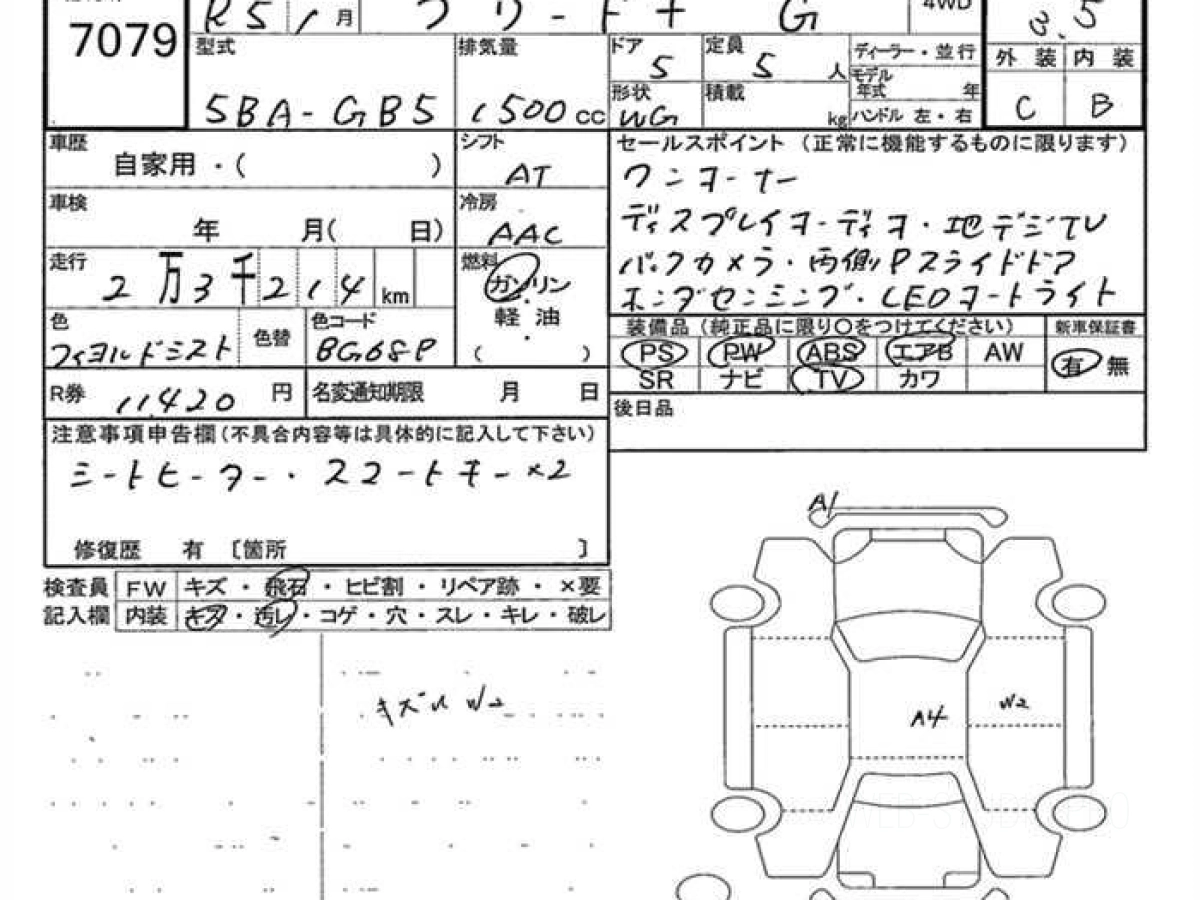 7079 R5 1 月 フリード+ G 4WD 3.5
型式 5BA-GB5 排気量 1500 cc
ドア 5 定員 5 人 ディーラー・並行
形状 WG 積載 kg モデル年式 年 ハンドル 左・右
外装 内装
C B
車歴 自家用・( )
シフト AT
車検 年 月( 日)
冷房 AAC
走行 2万3千214 km
燃料 ガソリン・軽油・( )
色 フィヨルドミスト 色替 色コード BG68P
R券 11,420 円 名変通知期限 月 日
セールスポイント (正常に機能するものに限ります)
ワンオーナー
ディスプレイオーディオ・地デジTV
バックカメラ・両側Pスライドドア
ホンダセンシング・LEDオートライト
装備品 (純正品に限り○をつけてください) 新車保証書
PS PW ABS エアB AW 有 無
SR ナビ TV カワ
後日品
注意事項申告欄(不具合内容等は具体的に記入して下さい)
シートヒーター・スマートキー×2
修復歴 有 〔箇所 〕
検査員 FW キズ・飛石・ヒビ割・リペア跡・×要
記入欄 内装 キズ・汚レ・コゲ・穴・スレ・キレ・破レ
A1
W2
A4
W2